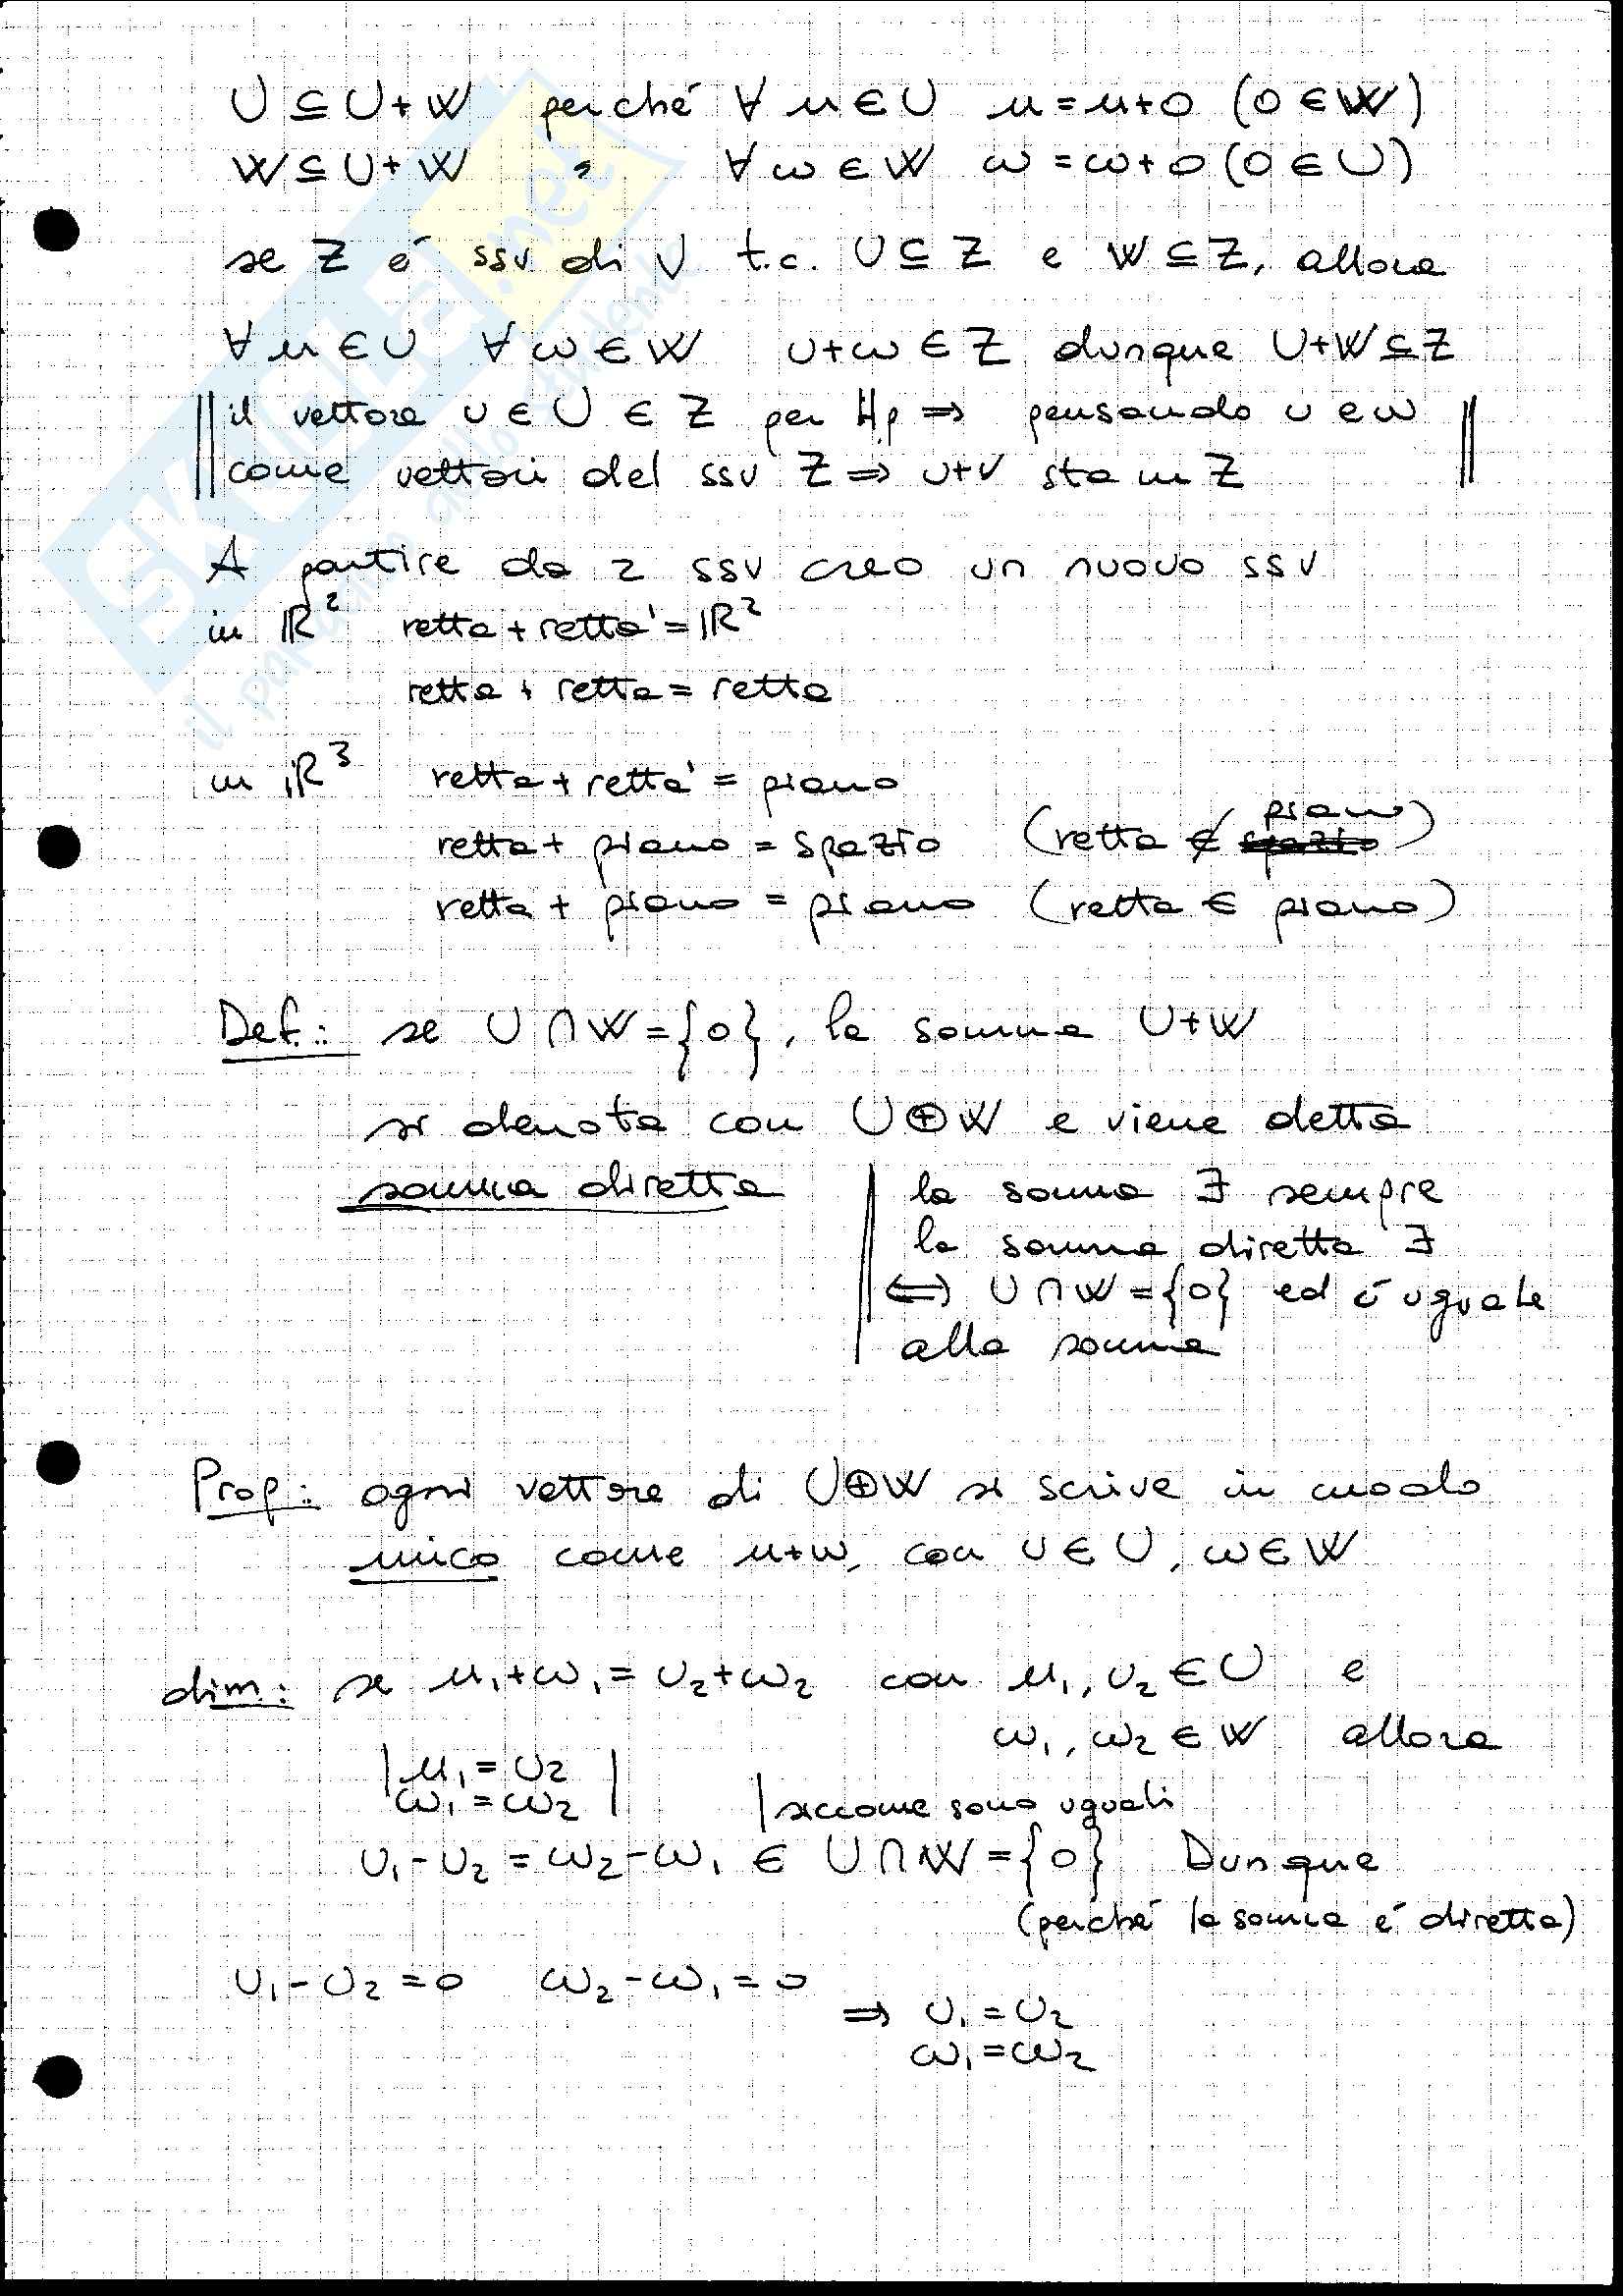 U ⊆ U+W perché ∀ u ∈ U u = u+0 (0 ∈ W)
W ⊆ U+W " ∀ w ∈ W w = w+0 (0 ∈ U)
se Z é ssv di V t.c. U ⊆ Z e W ⊆ Z, allora
∀ u ∈ U ∀ w ∈ W u+w ∈ Z dunque U+W ⊆ Z
il vettore u ∈ U ∈ Z per Hp ⇒ pensando u e w
come vettori del ssv Z ⇒ u+v sta in Z
A partire da 2 ssv creo un nuovo ssv
in ℝ² retta + retta' = ℝ²
retta + retta = retta
in ℝ³ retta + retta' = piano
retta + piano = spazio (retta ∉ piano)
retta + piano = piano (retta ∈ piano)
Def.: se U ∩ W = {0}, la somma U+W
si denota con U⊕W e viene detta
somma diretta
la somma ∃ sempre
la somma diretta ∃
⇔ U ∩ W = {0} ed é uguale
alla somma
Prop.: ogni vettore di U⊕W si scrive in modo
unico come u+w, con u ∈ U, w ∈ W
dim: se u₁+w₁ = u₂+w₂ con u₁, u₂ ∈ U e
w₁, w₂ ∈ W allora
u₁ = u₂
w₁ = w₂
siccome sono uguali
u₁-u₂ = w₂-w₁ ∈ U ∩ W = {0} Dunque
(perché la somma é diretta)
u₁-u₂ = 0 w₂-w₁ = 0
⇒ u₁ = u₂
w₁ = w₂